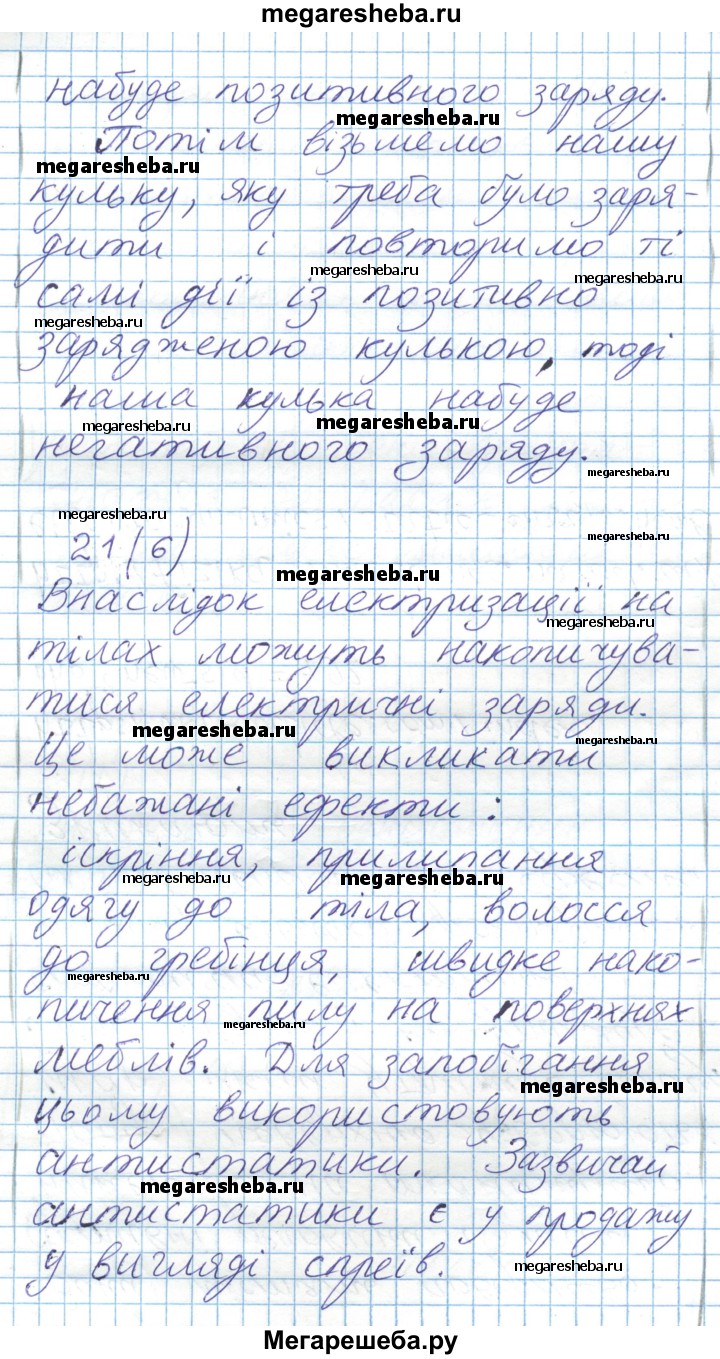 megaresheba.ru
набуде позитивного заряду.
megaresheba.ru
Потім візьмемо нашу
megaresheba.ru
кульку, яку треба було заря-
дити і повторимо ті
megaresheba.ru
megaresheba.ru
самі дії із позитивно
megaresheba.ru
зарядженою кулькою, тоді
наша кулька набуде
megaresheba.ru
megaresheba.ru
негативного заряду.
megaresheba.ru
megaresheba.ru
megaresheba.ru
21(6)
megaresheba.ru
Внаслідок електризації на
megaresheba.ru
тілах можуть накопичува-
тися електричні заряди.
megaresheba.ru
megaresheba.ru
Це може викликати
небажані ефекти:
іскріння, прилипання
megaresheba.ru
megaresheba.ru
одягу до тіла, волосся
до гребінця, швидке нако-
megaresheba.ru
пичення пилу на поверхнях
megaresheba.ru
меблів. Для запобігання
megaresheba.ru
цьому використовують
антистатики. Зазвичай
megaresheba.ru
антистатики є у продажу
у вигляді спреїв.
megaresheba.ru
Мегарешеба.ру